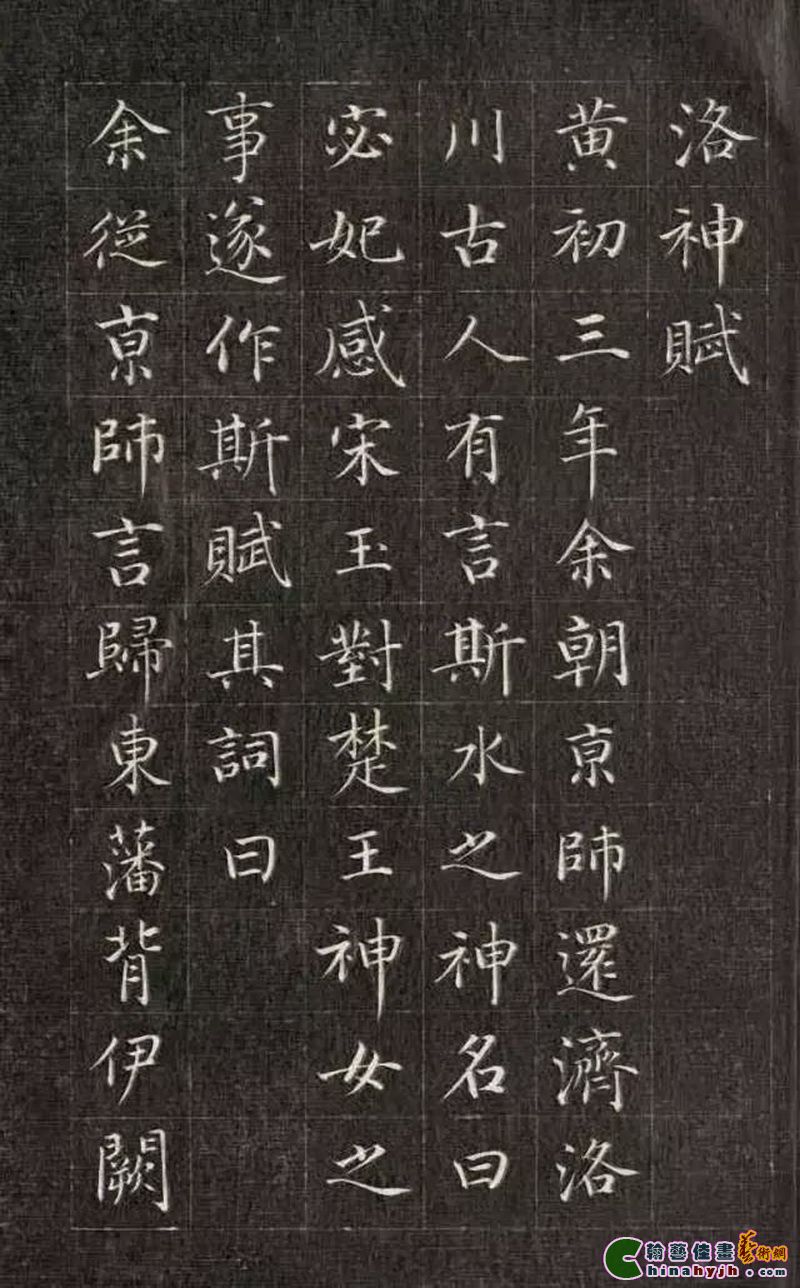 洛神賦
黄初三年余朝京師還濟洛
川古人有言斯水之神名曰
宓妃感宋玉對楚王神女之
事遂作斯賦其詞曰
余從京師言歸東藩背伊闕
翰藝佳畫藝術網
Chinahyjh.com